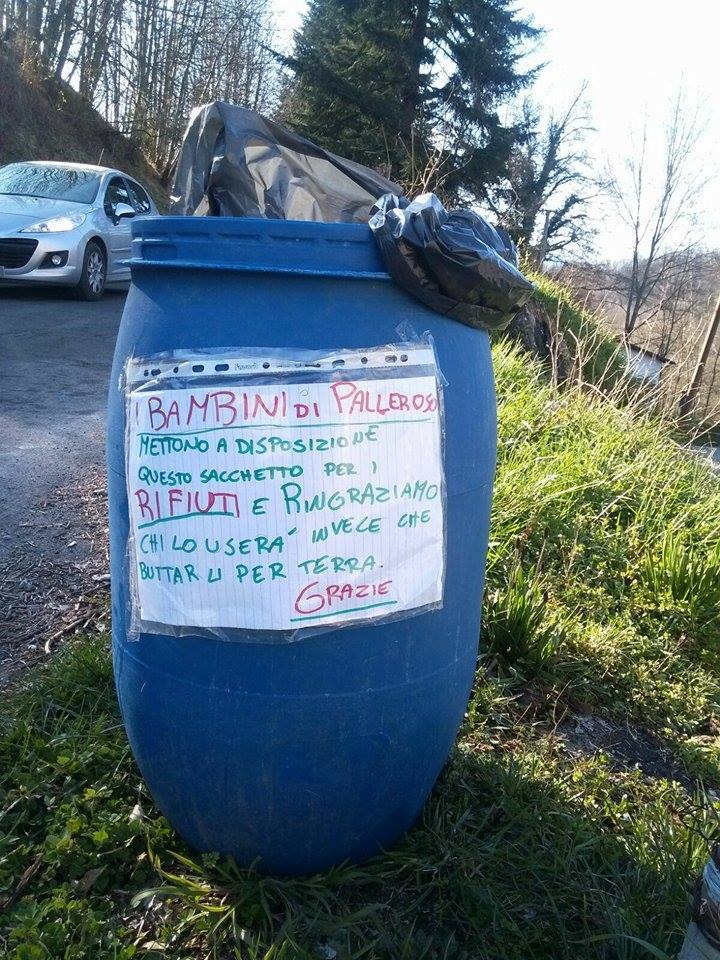 I BAMBINI DI PALLEROSO
METTONO A DISPOSIZIONE
QUESTO SACCHETTO PER I
RIFIUTI E RINGRAZIAMO
CHI LO USERA' INVECE CHE
BUTTARLI PER TERRA.
GRAZIE